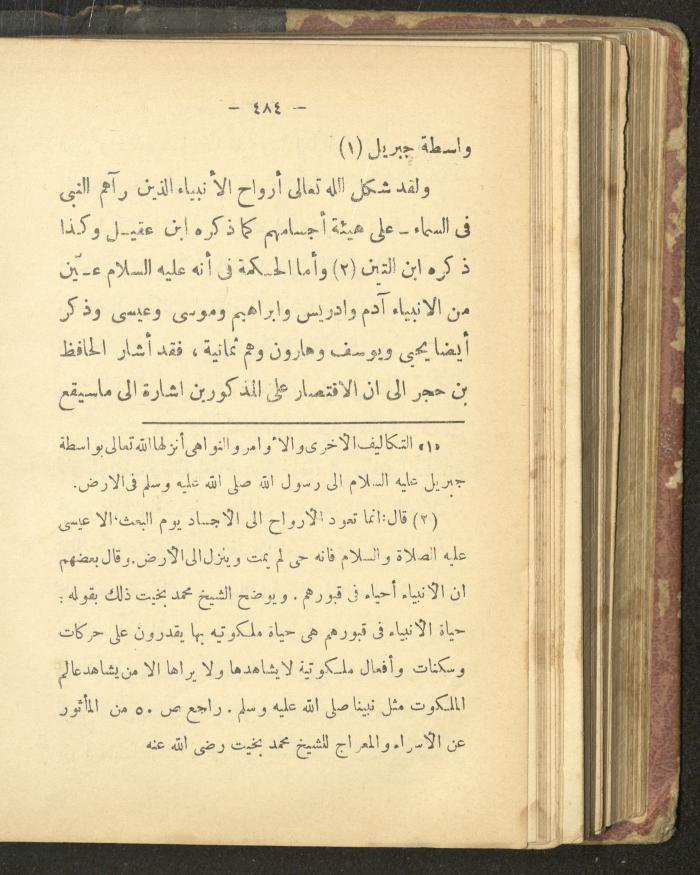 — ٤٨٤ —
واسطة جبريل (١)
ولقد شكل الله تعالى أرواح الأنبياء الذين رآهم النبى
فى السماء ـ على هيئة أجسامهم كما ذكره ابن عقيل وكذا
ذكره ابن التين (٢) وأما الحكمة فى أنه عليه السلام عيّن
من الانبياء آدم وادريس وابراهيم وموسى وعيسى وذكر
أيضا يحيى ويوسف وهارون وهم ثمانية ، فقد أشار الحافظ
بن حجر الى ان الاقتصار على المذكورين اشارة الى ماسيقع
«١» التكاليف الأخرى والأوامر والنواهى أنزلها الله تعالى بواسطة
جبريل عليه السلام الى رسول الله صلى الله عليه وسلم فى الارض.
(٢) قال: انما تعود الأرواح الى الأجساد يوم البعث، الا عيسى
عليه الصلاة والسلام فانه حى لم يمت وينزل الى الأرض. وقال بعضهم
ان الأنبياء أحياء فى قبورهم . ويوضح الشيخ محمد بخيت ذلك بقوله :
حياة الأنبياء فى قبورهم هى حياة ملكوتيه بها يقدرون على حركات
وسكنات وأفعال ملكوتية لا يشاهدها ولا يراها الا من يشاهد عالم
الملكوت مثل نبينا صلى الله عليه وسلم . راجع ص ٥٠ من المأثور
عن الأسراء والمعراج للشيخ محمد بخيت رضى الله عنه